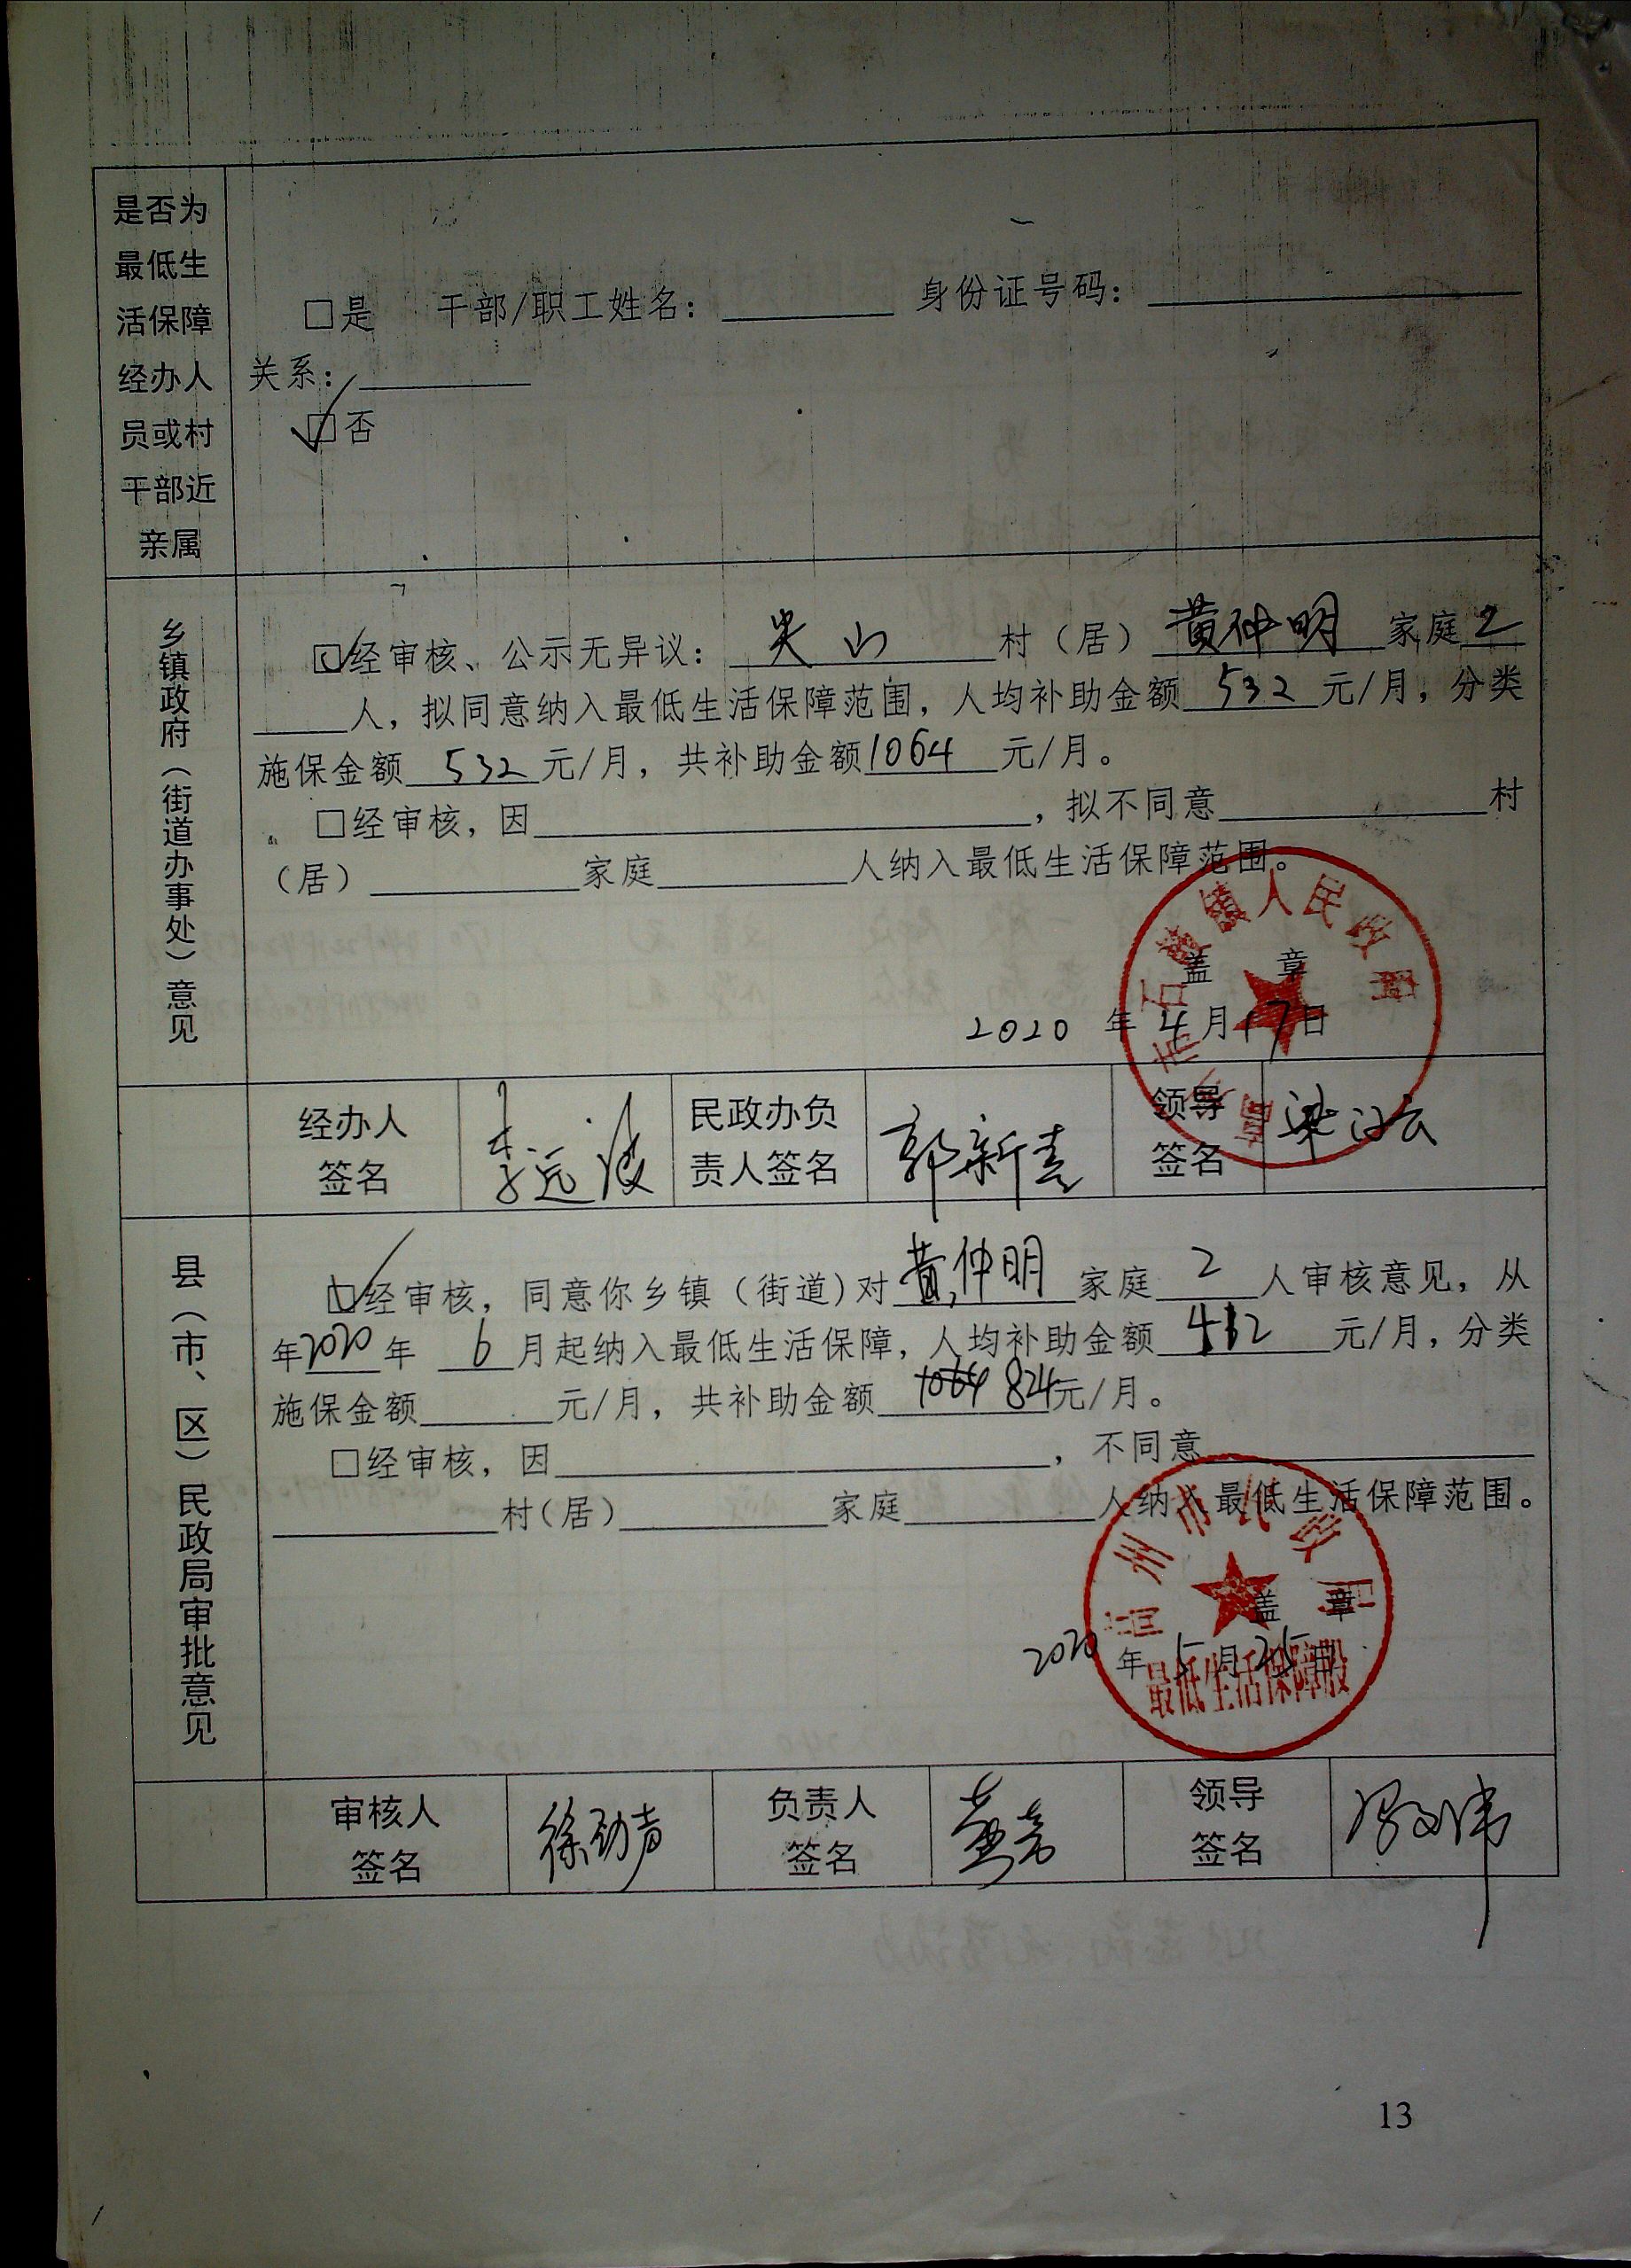 是否为
最低生
活保障
经办人
员或村
干部近
亲属
□是 干部/职工姓名：________ 身份证号码：________
关系：________
☑否
乡镇政府（街道办事处）意见
☑经审核、公示无异议：尖山村（居）黄仲明家庭2
人，拟同意纳入最低生活保障范围，人均补助金额532元/月，分类
施保金额532元/月，共补助金额1064元/月。
□经审核，因________，拟不同意________村
（居）________家庭________人纳入最低生活保障范围。
石鼓镇人民政府
盖 章
2020年4月17日
经办人
签名
李远波
民政办负
责人签名
郭新
领导
签名
梁
县（市、区）民政局审批意见
☑经审核，同意你乡镇（街道)对黄仲明家庭2人审核意见，从
年2020年6月起纳入最低生活保障，人均补助金额412元/月，分类
施保金额________元/月，共补助金额1064 824元/月。
□经审核，因________，不同意________
________村(居)________家庭________人纳入最低生活保障范围。
高州市民政局
盖 章
2020年5月25日
最低生活保障股
审核人
签名
徐
负责人
签名
领导
签名
13